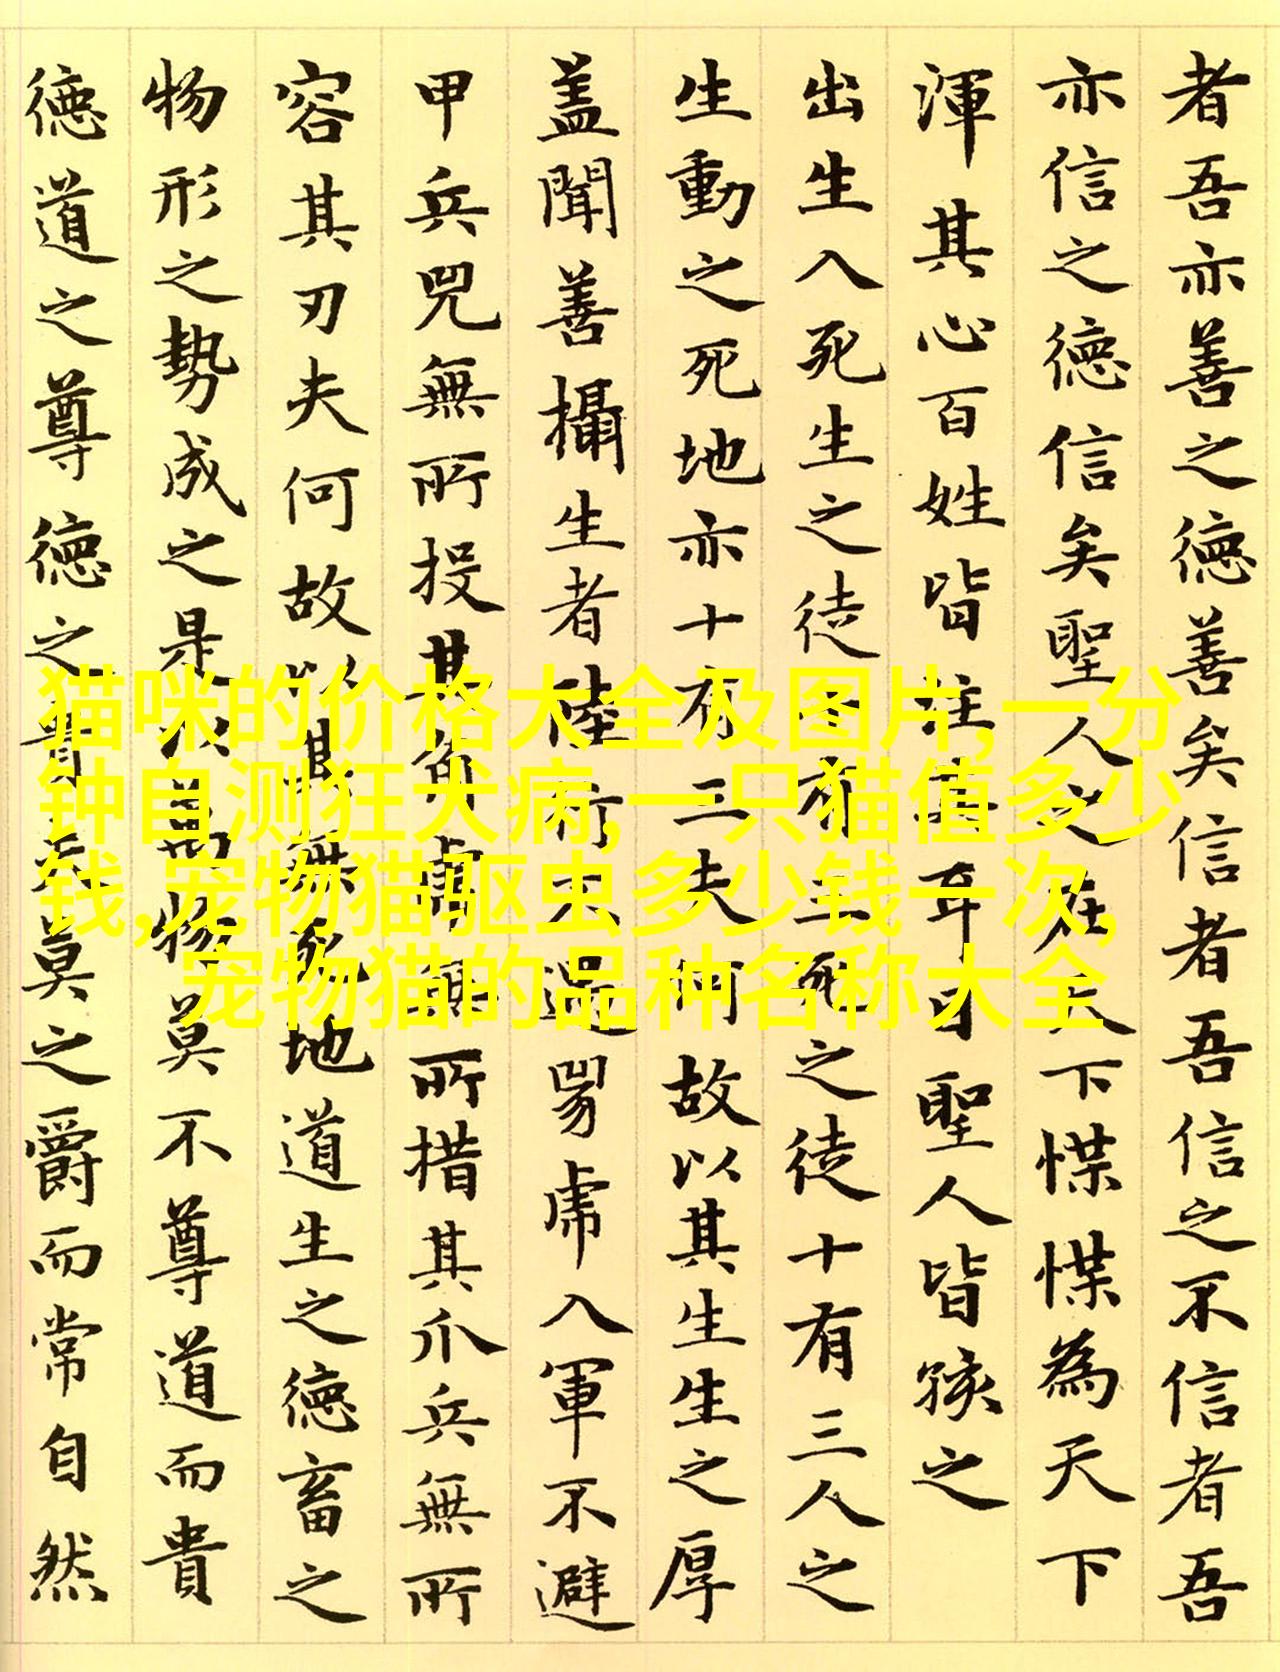 者吾亦善之德善矣信者吾信之不信者吾
亦信之德信矣聖人之在天下惵惵為天下
渾其心百姓皆注其耳目聖人皆孩之
出生入死生之徒十有三死之徒十有三人之
生動之死地亦十有三夫何故以其生生之厚
盖聞善攝生者陸行不遇兕虎入軍不避
甲兵兕無所投其角虎無所措其爪兵無所
容其刃夫何故以其無死地道生之德畜之
物形之勢成之是以萬物莫不尊道而貴
德道之尊德之貴夫莫之爵而常自然
猫咪的价格大全及图片,一分
钟自测狂犬病,一只猫值多少
钱,宠物猫驱虫多少钱一次,
宠物猫的品种名称大全